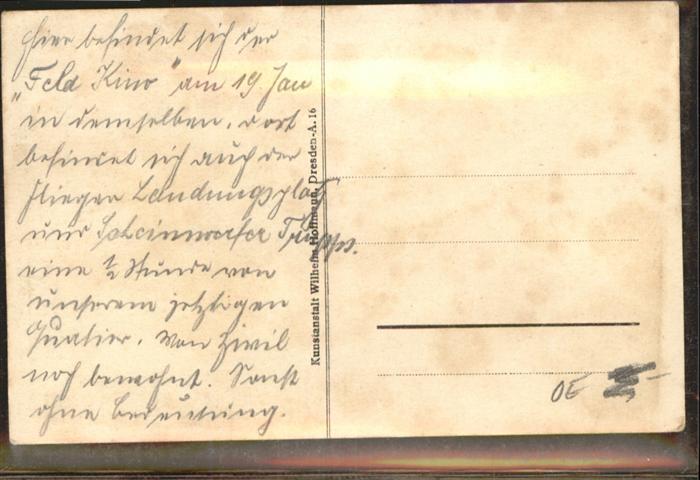 Hier befindet sich der
„Feld Kino" am 19. Jan
in demselben, dort
befindet sich auch der
Flieger Landungsplatz
und Scheinwerfer Trupps.
eine 1/2 Stunde von
unserem jetzigen
Quatier. Von Zivil
noch bewohnt. Sonst
ohne Bedeutung.
Kunstanstalt Wilhelm Hoffmann, Dresden-A. 16
OE